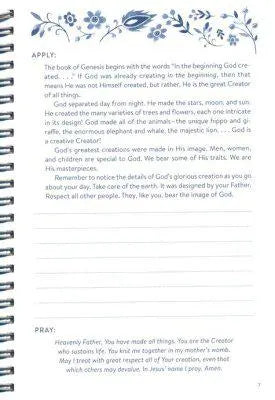 APPLY:
The book of Genesis begins with the words "In the beginning God cre-
ated. . . ." If God was already creating in the beginning, then that
means He was not Himself created, but rather, He is the great Creator
of all things.
God separated day from night. He made the stars, moon, and sun.
He created the many varieties of trees and flowers, each one intricate
in its design! God made all of the animals—the unique hippo and gi-
raffe, the enormous elephant and whale, the majestic lion. . . . God is
a creative Creator!
God's greatest creations were made in His image. Men, women,
and children are special to God. We bear some of His traits. We are
His masterpieces.
Remember to notice the details of God's glorious creation as you go
about your day. Take care of the earth. It was designed by your Father.
Respect all other people. They, like you, bear the image of God.
PRAY:
Heavenly Father, You have made all things. You are the Creator
who sustains life. You knit me together in my mother's womb.
May I treat with great respect all of Your creation, even that
which others may devalue. In Jesus' name I pray. Amen.
7